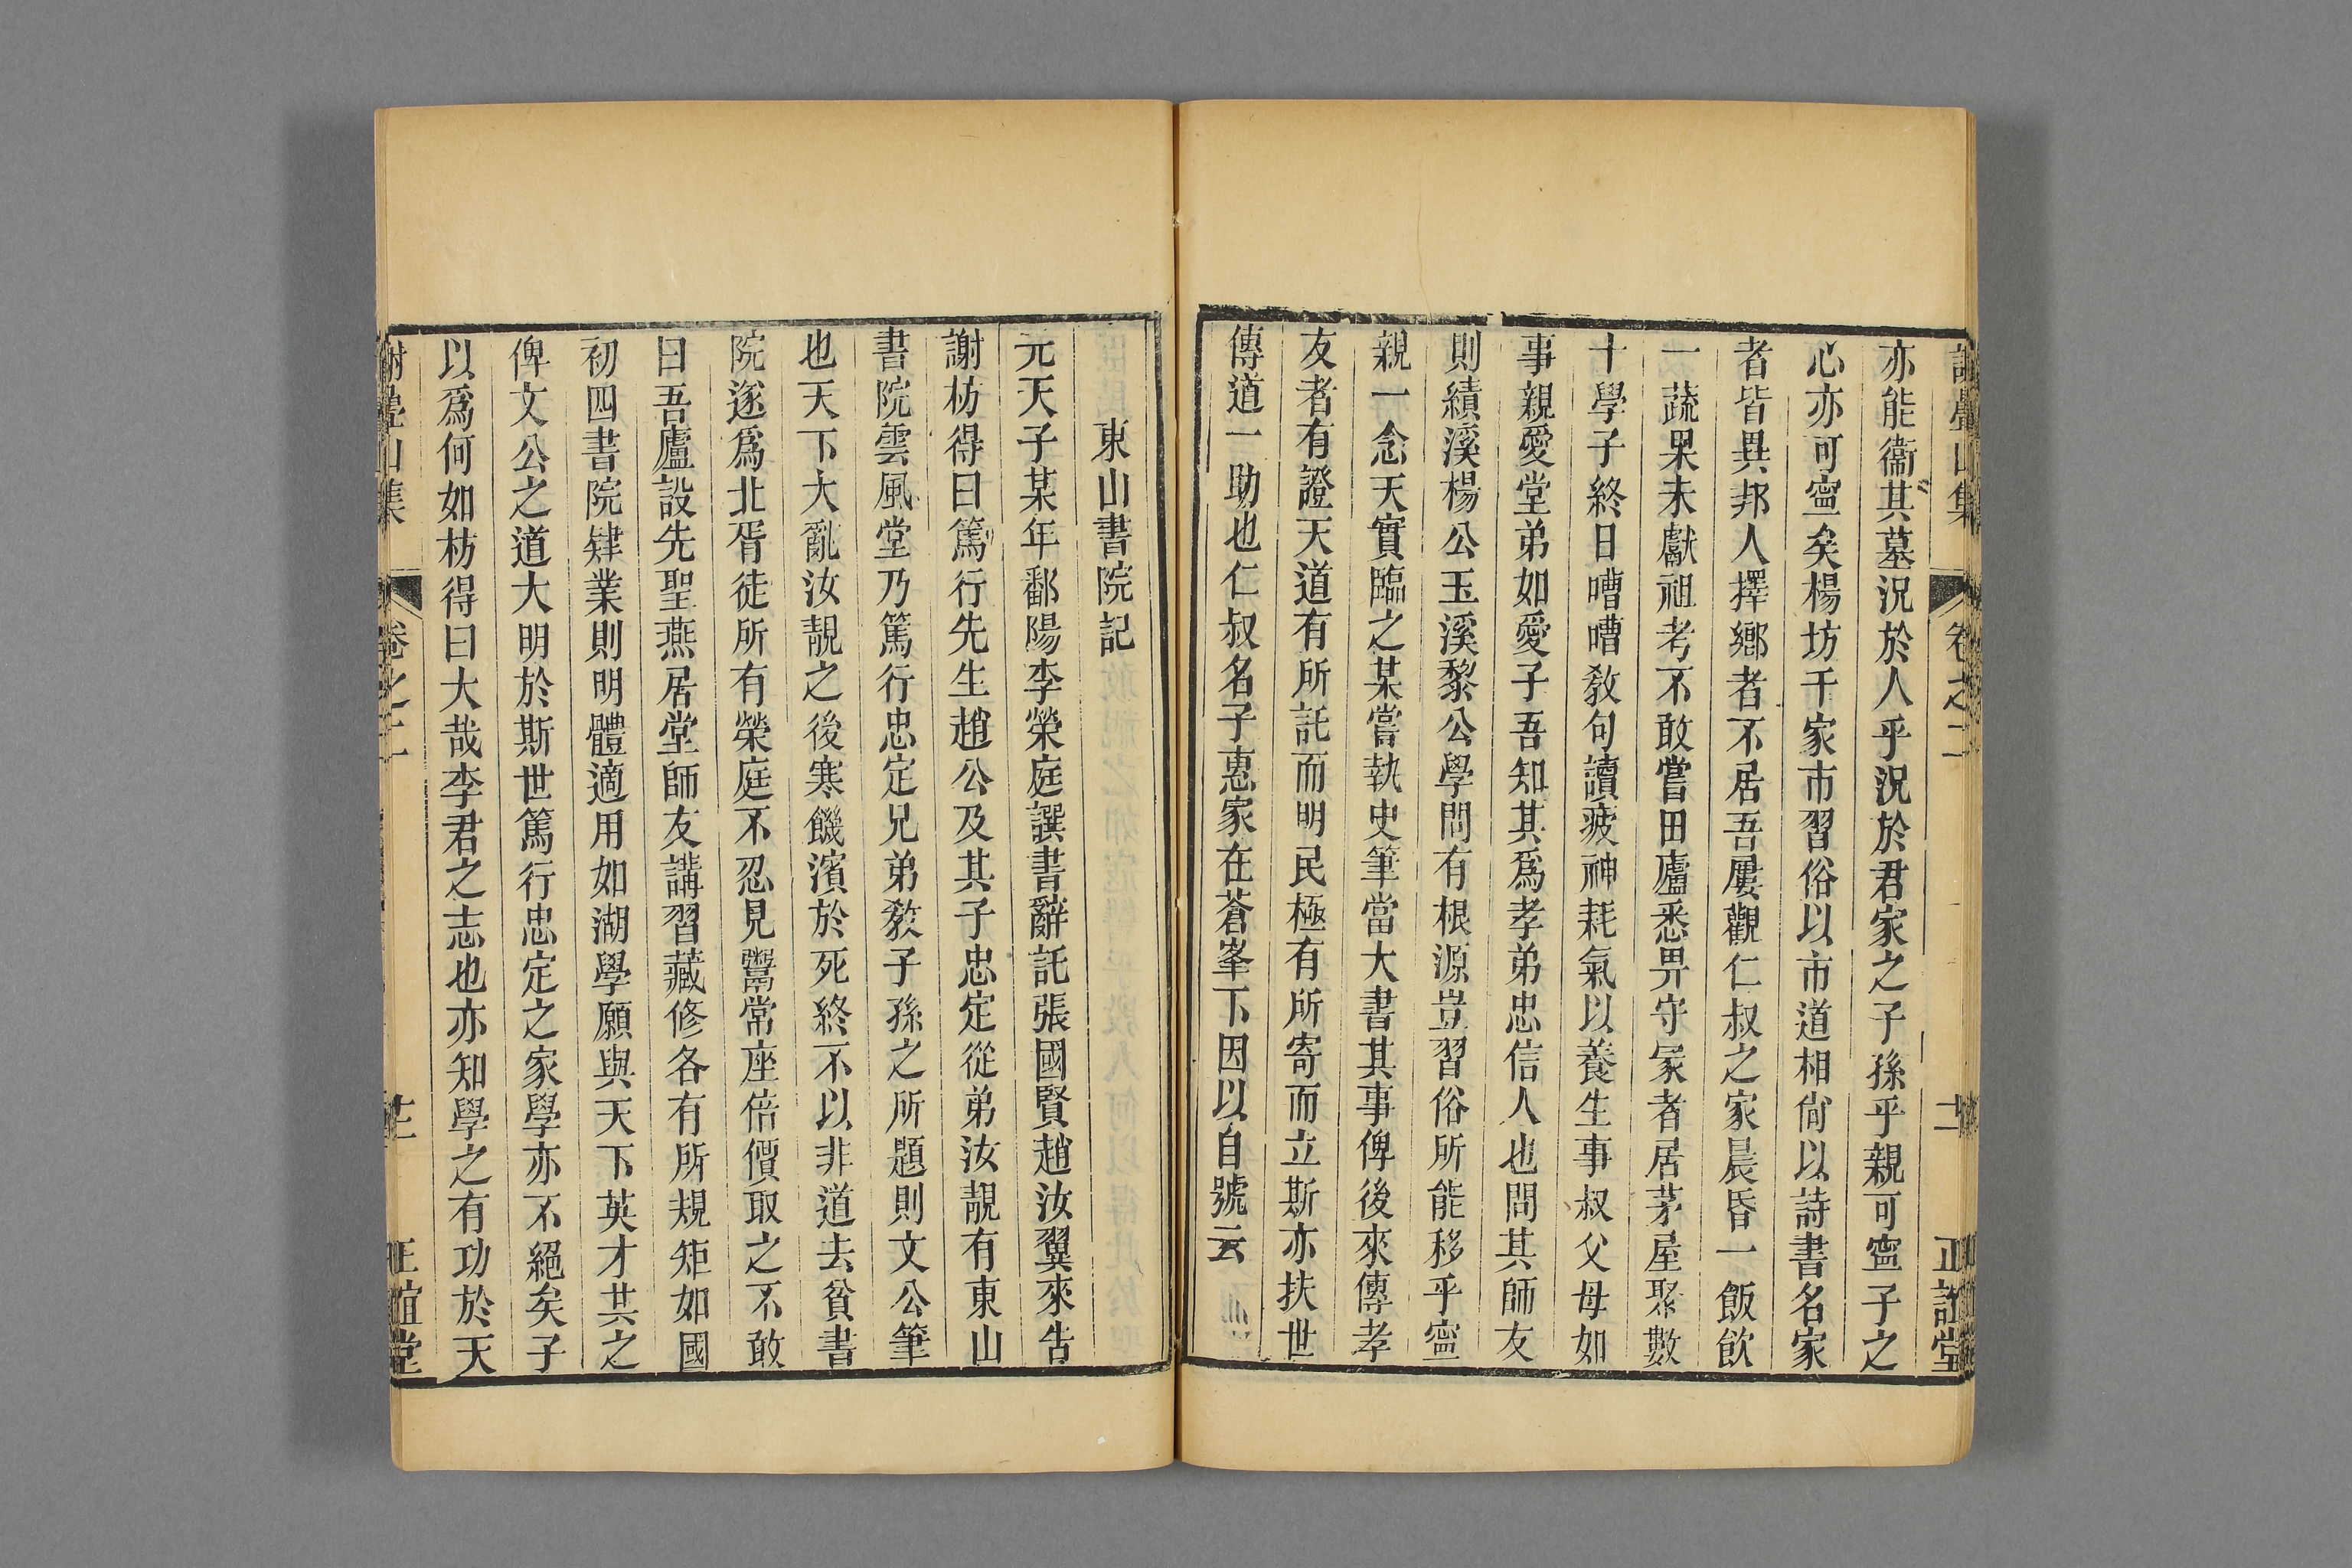 謝疊山集 卷之二 十一 正誼堂
亦能衞其墓況於人乎況於君家之子孫乎親可寧子之
心亦可寧矣楊坊千家市習俗以市道相尙以詩書名家
者皆異邦人擇鄕者不居吾屢觀仁叔之家晨昏一飯飮
一蔬果未獻祖考不敢嘗田廬悉畀守冢者居茅屋聚數
十學子終日嘈嘈敎句讀疲神耗氣以養生事叔父母如
事親愛堂弟如愛子吾知其爲孝弟忠信人也問其師友
則績溪楊公玉溪黎公學問有根源豈習俗所能移乎寧
親一念天實臨之某嘗執史筆當大書其事俾後來傳孝
友者有證天道有所託而明民極有所寄而立斯亦扶世
傳道一助也仁叔名子惠家在蒼峯下因以自號云
東山書院記
元天子某年鄱陽李榮庭譔書辭託張國賢趙汝翼來告
謝枋得曰篤行先生趙公及其子忠定從弟汝靚有東山
書院雲風堂乃篤行忠定兄弟敎子孫之所題則文公筆
也天下大亂汝靚之後寒饑濱於死終不以非道去貧書
院遂爲北胥徒所有榮庭不忍見鬻常座倍價取之不敢
曰吾廬設先聖燕居堂師友講習藏修各有所規矩如國
初四書院肄業則明體適用如湖學願與天下英才共之
俾文公之道大明於斯世篤行忠定之家學亦不絕矣子
以爲何如枋得曰大哉李君之志也亦知學之有功於天
謝疊山集 卷之二 正誼堂